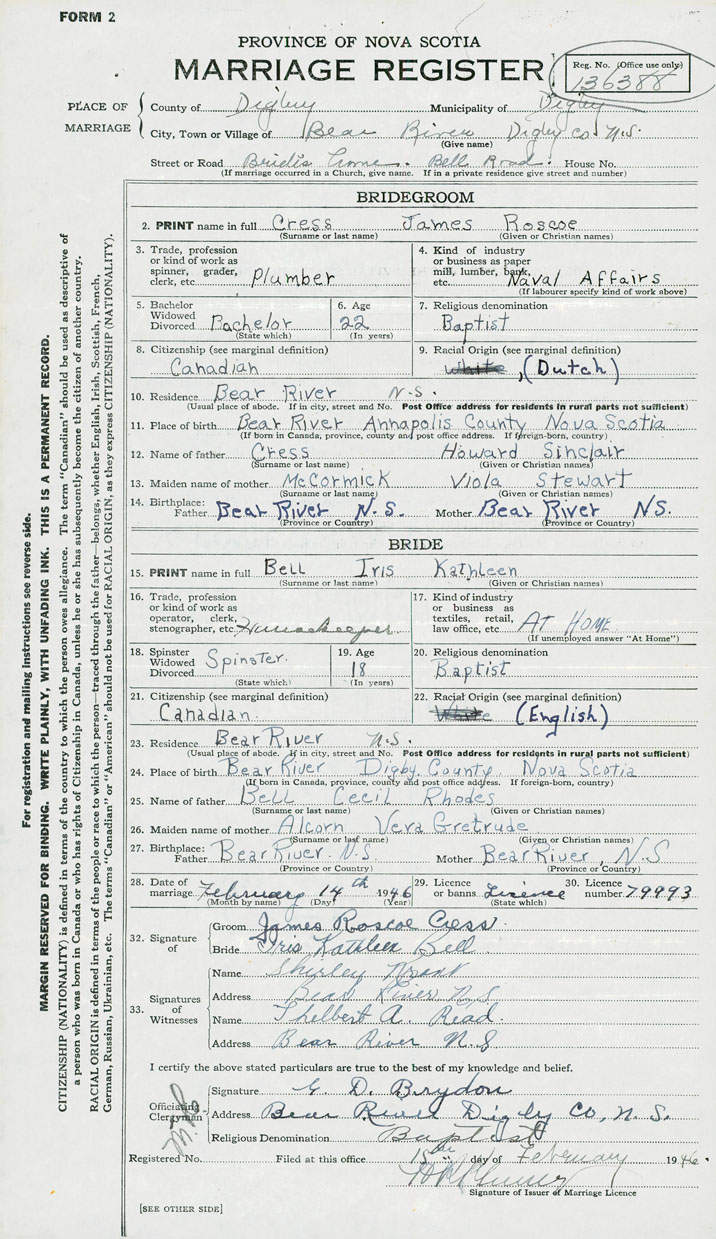 FORM 2
PROVINCE OF NOVA SCOTIA
MARRIAGE REGISTER
Reg. No. (Office use only)
136388
PLACE OF MARRIAGE
County of Digby Municipality of Digby
City, Town or Village of Bear River Digby Co N.S.
(Give name)
Street or Road Bride's home. Bell Road. House No.
(If marriage occurred in a Church, give name. If in a private residence give street and number)
BRIDEGROOM
2. PRINT name in full Cress James Roscoe
(Surname or last name) (Given or Christian names)
3. Trade, profession or kind of work as spinner, grader, clerk, etc. Plumber
4. Kind of industry or business as paper mill, lumber, bank, etc. Naval Affairs
(If labourer specify kind of work above)
5. Bachelor Widowed Divorced Bachelor
(State which)
6. Age 22
(In years)
7. Religious denomination
Baptist
8. Citizenship (see marginal definition)
Canadian
9. Racial Origin (see marginal definition)
White, (Dutch)
10. Residence Bear River N.S.
(Usual place of abode. If in city, street and No. Post Office address for residents in rural parts not sufficient)
11. Place of birth Bear River Annapolis County Nova Scotia
(If born in Canada, province, county and post office address. If foreign-born, country)
12. Name of father Cress Howard Sinclair
(Surname or last name) (Given or Christian names)
13. Maiden name of mother McCormick Viola Stewart
(Surname or last name) (Given or Christian names)
14. Birthplace: Father Bear River N.S. Mother Bear River N.S.
(Province or Country) (Province or Country)
BRIDE
15. PRINT name in full Bell Iris Kathleen
(Surname or last name) (Given or Christian names)
16. Trade, profession or kind of work as operator, clerk, stenographer, etc. Housekeeper
17. Kind of industry or business as textiles, retail, law office, etc. AT HOME
(If unemployed answer "At Home")
18. Spinster Widowed Divorced Spinster.
(State which)
19. Age 18
(In years)
20. Religious denomination
Baptist
21. Citizenship (see marginal definition)
Canadian.
22. Racial Origin (see marginal definition)
White (English)
23. Residence Bear River N.S.
(Usual place of abode. If in city, street and No. Post Office address for residents in rural parts not sufficient)
24. Place of birth Bear River Digby County Nova Scotia
(If born in Canada, province, county and post office address. If foreign-born, country)
25. Name of father Bell Cecil Rhodes
(Surname or last name) (Given or Christian names)
26. Maiden name of mother Alcorn Vera Gretrude
(Surname or last name) (Given or Christian names)
27. Birthplace: Father Bear River N.S. Mother Bear River, N.S
(Province or Country) (Province or Country)
28. Date of marriage February 14th 1946
(Month by name) (Day) (Year)
29. Licence or banns Licence
(State which)
30. Licence number 79993
32. Signature of
Groom James Roscoe Cress
Bride Iris Kathleen Bell
33. Signatures of Witnesses
Name Shirley
Address Bear River N.S
Name Thelbert A. Read
Address Bear River N.S
I certify the above stated particulars are true to the best of my knowledge and belief.
Officiating Clergyman
Signature G. D. Brydon
Address Bear River Digby Co, N.S.
Religious Denomination Baptist
Registered No. Filed at this office 15th day of February 1946.
Signature of Issuer of Marriage Licence
[SEE OTHER SIDE]
For registration and mailing instructions see reverse side.
MARGIN RESERVED FOR BINDING. WRITE PLAINLY, WITH UNFADING INK. THIS IS A PERMANENT RECORD.
CITIZENSHIP (NATIONALITY) is defined in terms of the country to which the person owes allegiance. The term "Canadian" should be used as descriptive of
a person who was born in Canada or who has rights of Citizenship in Canada, unless he or she has subsequently become the citizen of another country.
RACIAL ORIGIN is defined in terms of the people or race to which the person—traced through the father—belongs, whether English, Irish, Scottish, French,
German, Russian, Ukrainian, etc. The terms "Canadian" or "American" should not be used for RACIAL ORIGIN, as they express CITIZENSHIP (NATIONALITY).